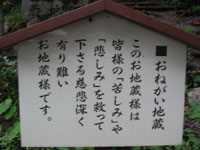 ■おねがい地蔵
このお地蔵様は
皆様の「苦しみ」や
「悲しみ」を救って
下さる慈悲深く
有り難い
お地蔵様です。